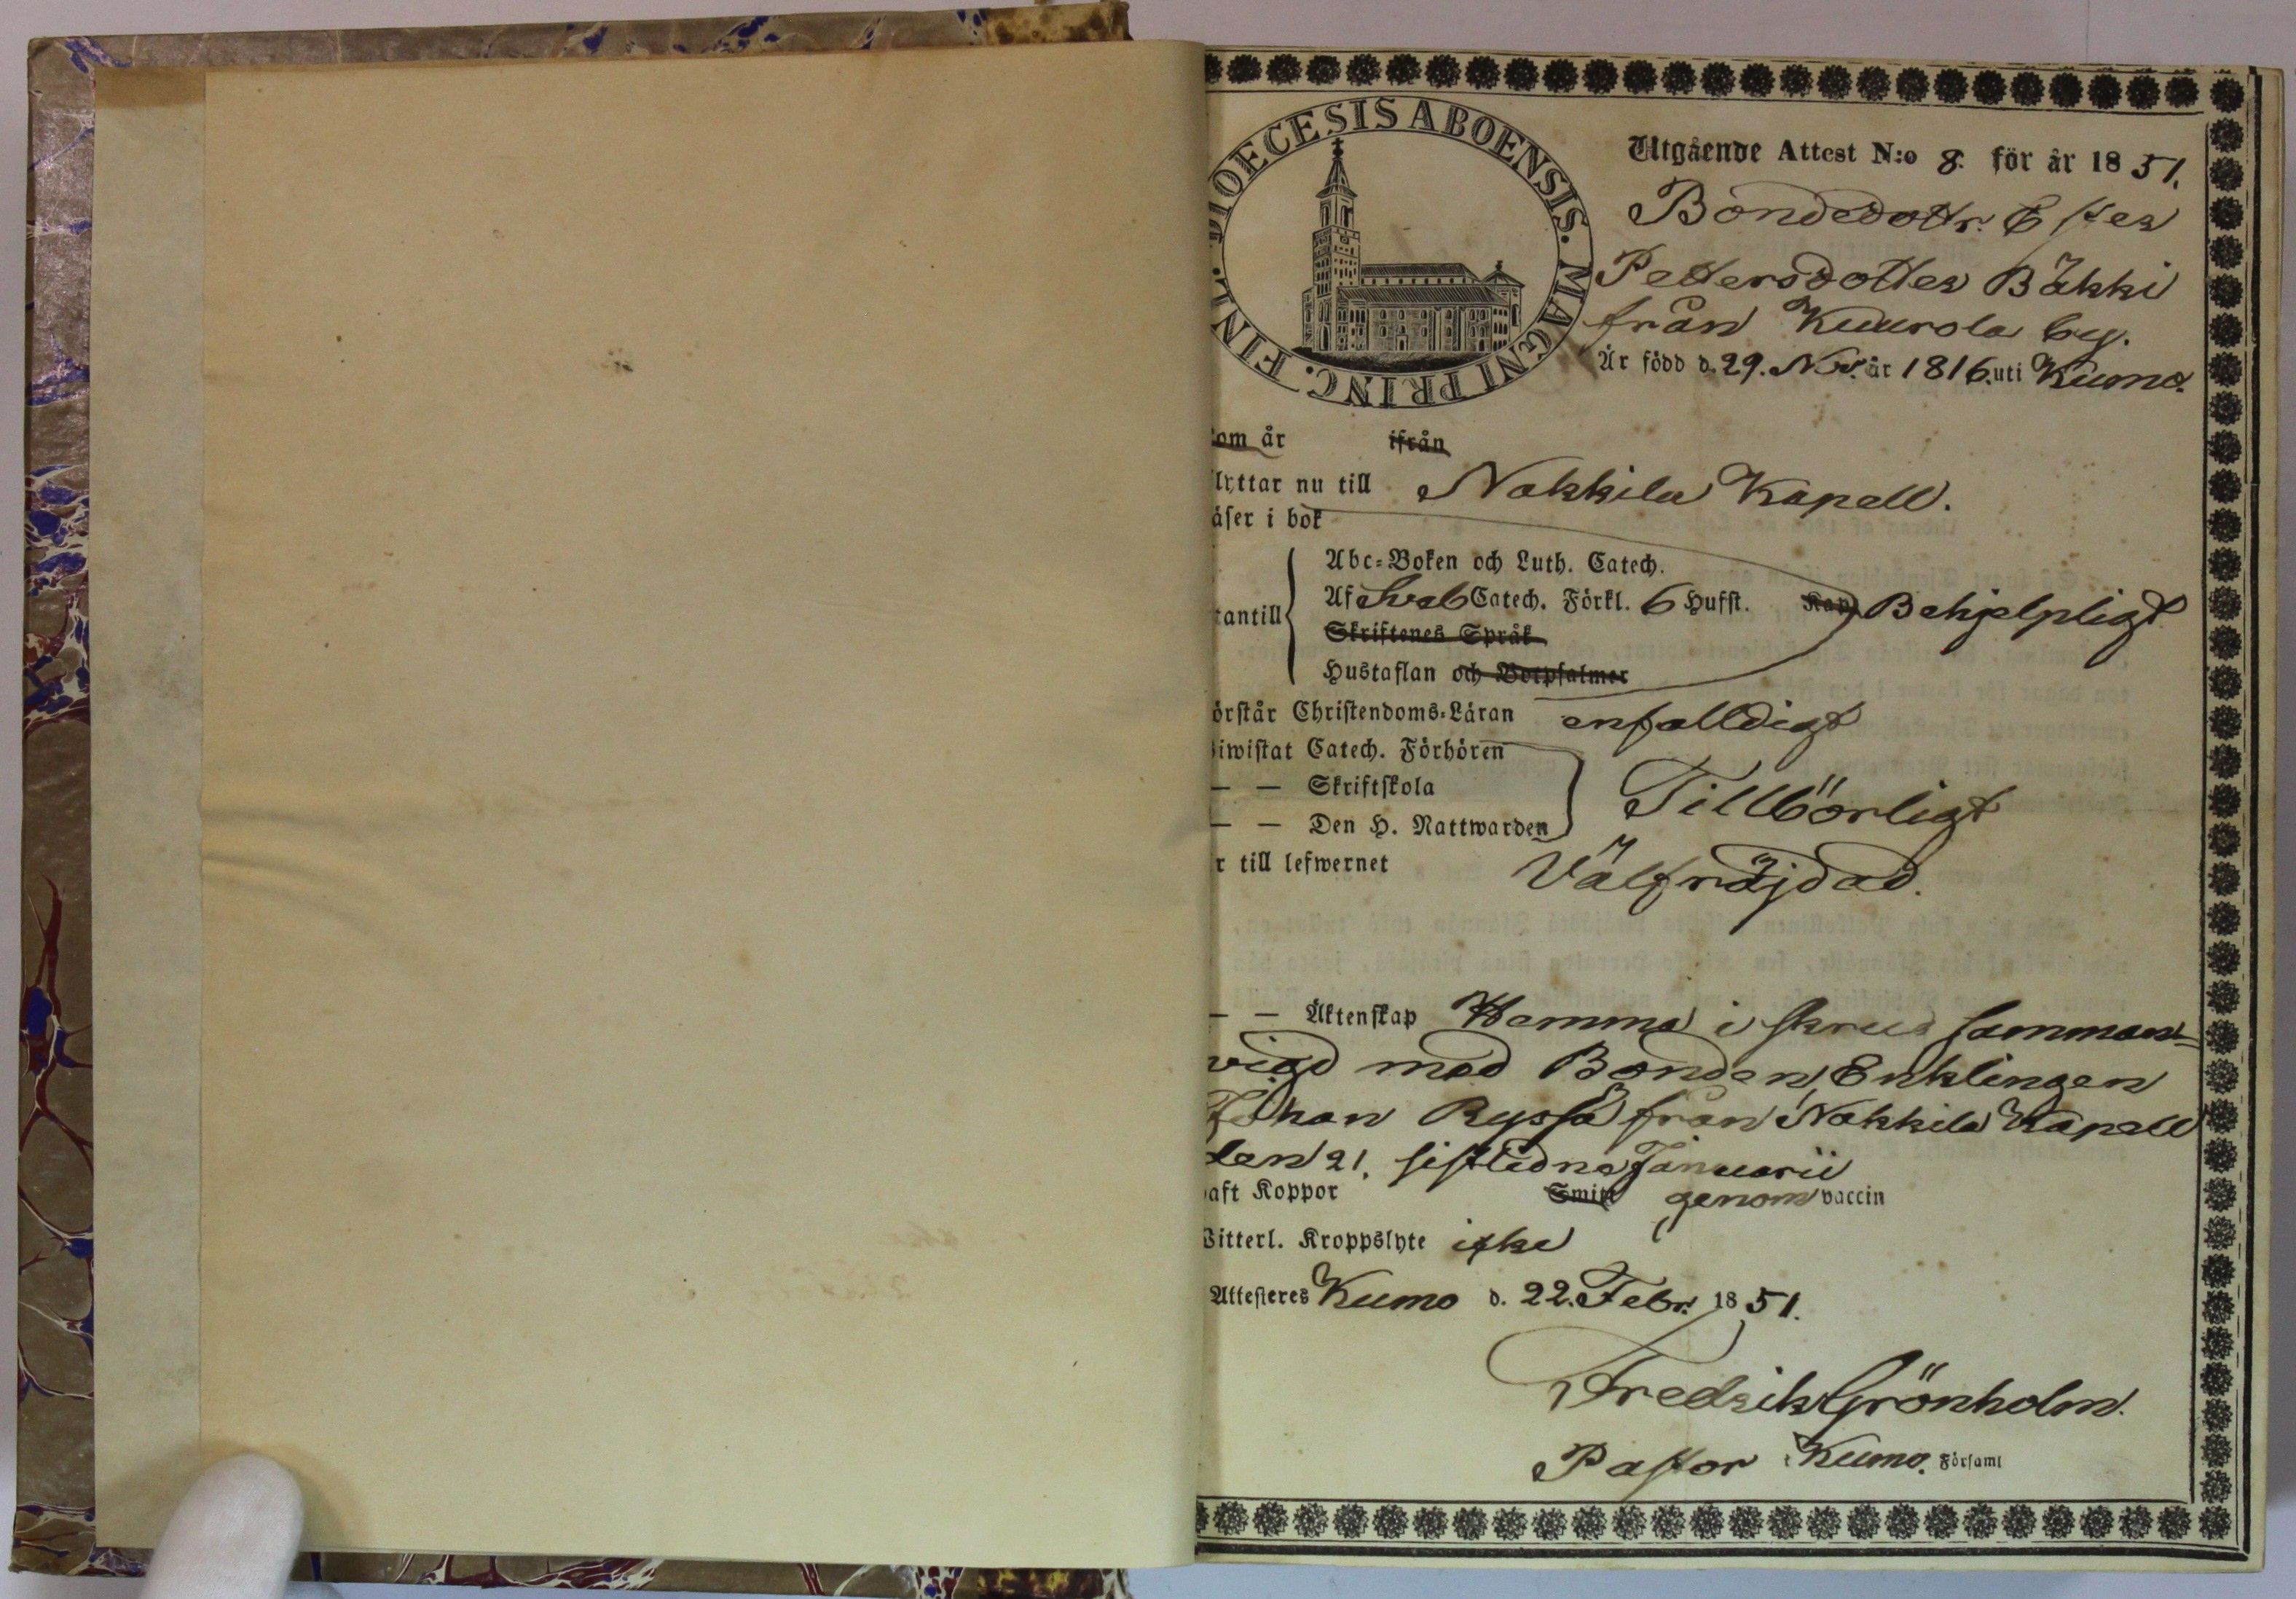 FINL. DIOECESIS ABOENSIS. MAGNI PRINC.
Utgående Attest N:o 8. för år 1851.
Bondedottr. Ester
Pettersdotter Bäkki
från Kuurola by.
Är född d. 29. Nov. år 1816. uti Kumo.
om år ifrån
lyttar nu till Nakkila Kapell.
äser i bok
Abc-Boken och Luth. Catech.
Af Sveb Catech. Förkl. 6 Hufst. Kap. Behjelpligt
tantill
Skriftenes Språk
Hustaflan och Botpsalmer
örstår Christendoms-Läran enfalldigt
iwistat Catech. Förhören
— — Skriftskola Tillbörligt
— — Den H. Nattwarden
r till lefwernet Välfräjdad.
— — Äktenskap Hemma i skrud samman-
vigd med Bonden, Enklingen
Johan Ryssä från Nakkila Kapell
den 21. sistledne Januarii
aft Koppor Smitt genom vaccin
Witterl. Kroppslyte icke
Attesteres Kumo d. 22. Febr. 1851.
Fredrik Grönholm.
Pastor i Kumo. Församl